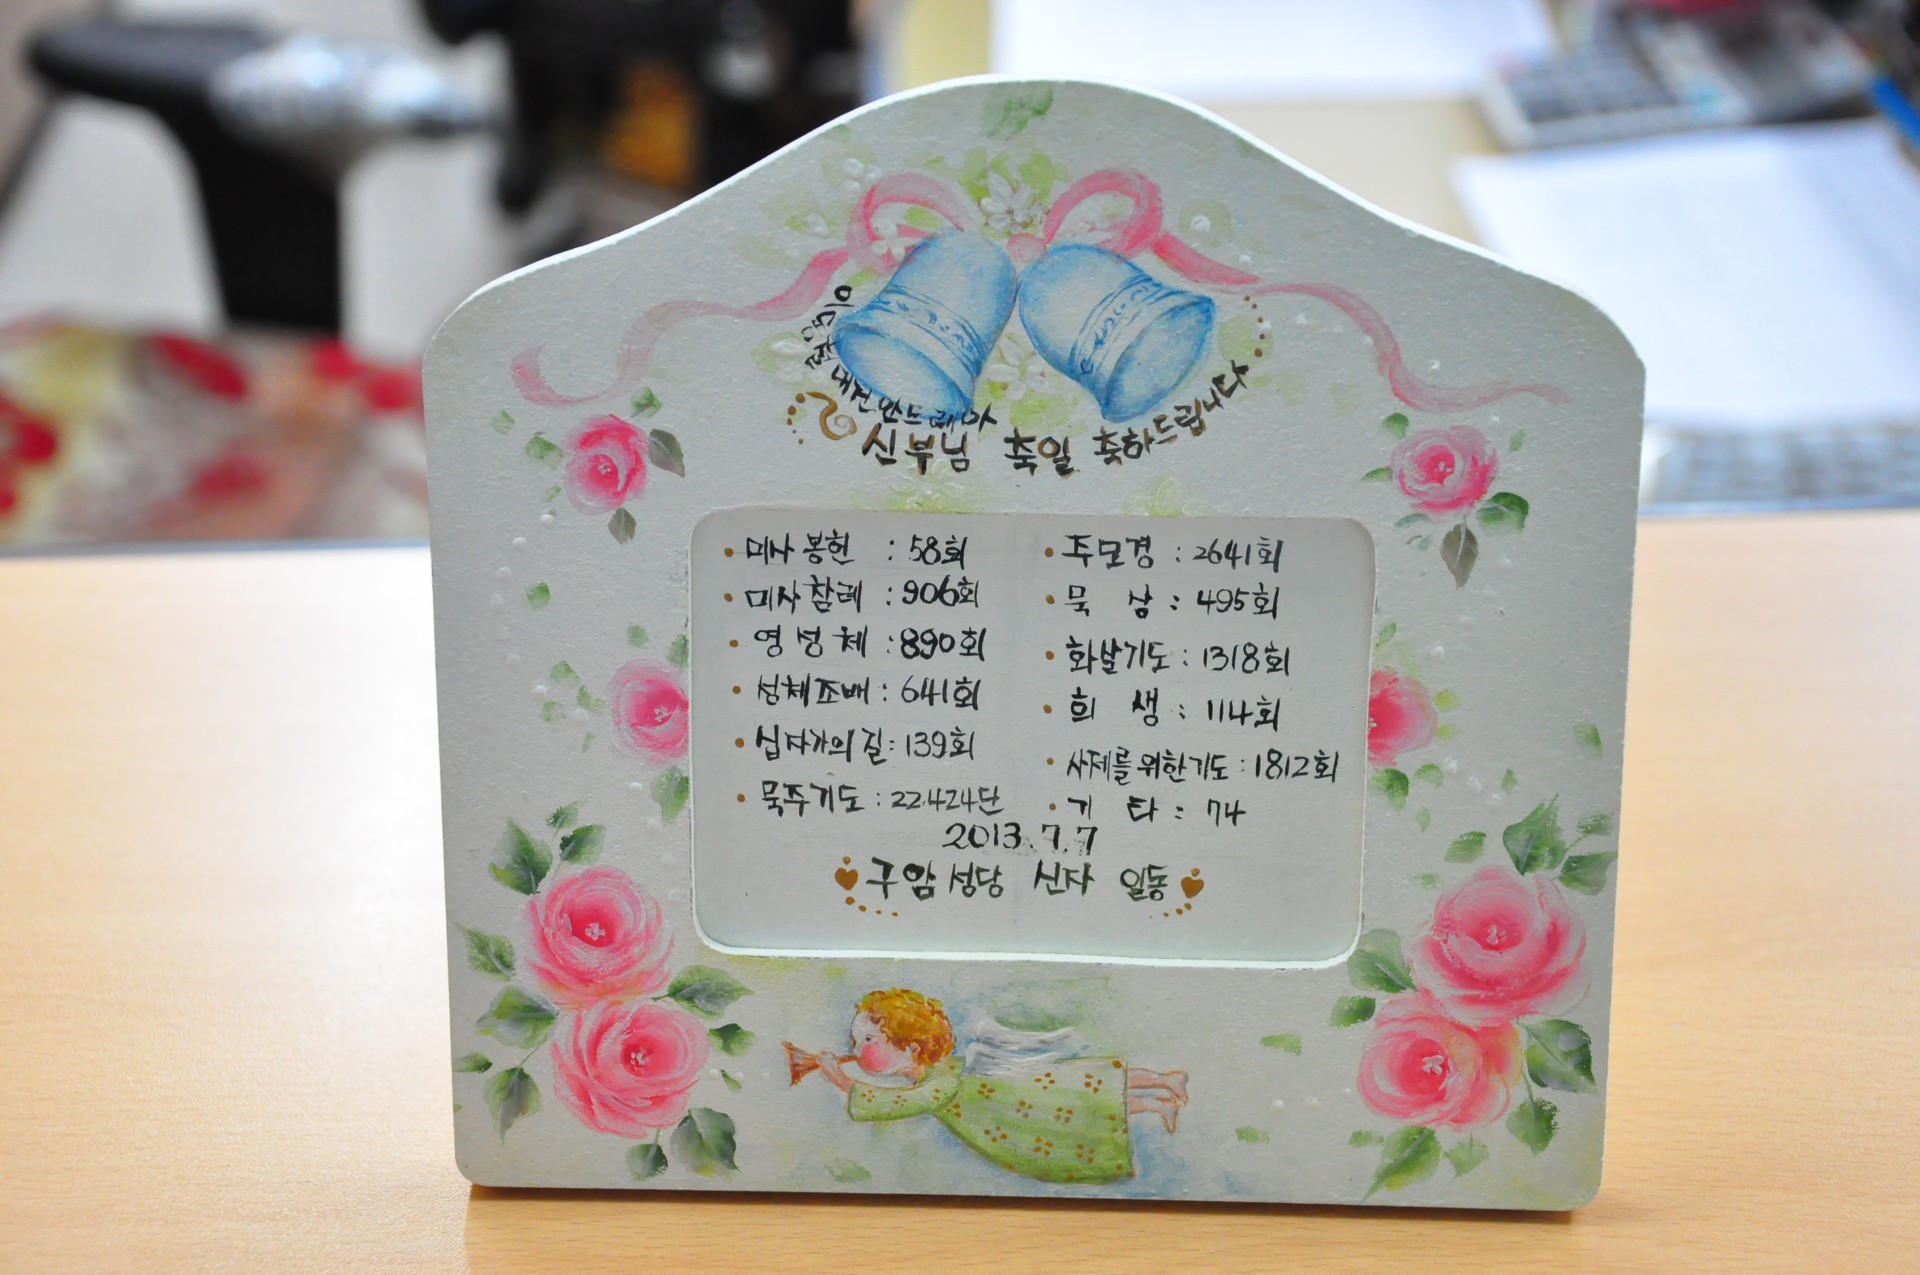 대건 안드레아
신부님 축일 축하드립니다
• 미사 봉헌 : 58회
• 미사 참례 : 906회
• 영성체 : 890회
• 성체조배 : 641회
• 십자가의 길 : 139회
• 묵주기도 : 22.424단
• 주모경 : 2641회
• 묵 상 : 495회
• 화살기도 : 1318회
• 희 생 : 114회
• 사제를 위한 기도 : 1812회
• 기 타 : 74
2013.7.7
구암성당 신자 일동